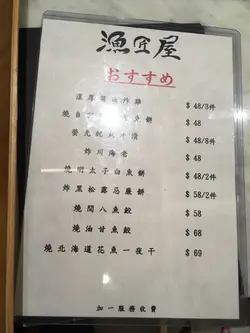 漁匠屋
おすすめ
炸雞 $ 48/3件
燒自 魚餅 $ 48
螢光魷 漬 $ 48/8件
炸川海老 $ 48
燒明太子白魚餅 $ 48/2件
炸黑松露忌廉餅 $ 58/2件
燒間八魚鮫 $ 58
燒油甘魚鮫 $ 68
燒北海道花魚一夜干 $ 69
加一服務收費